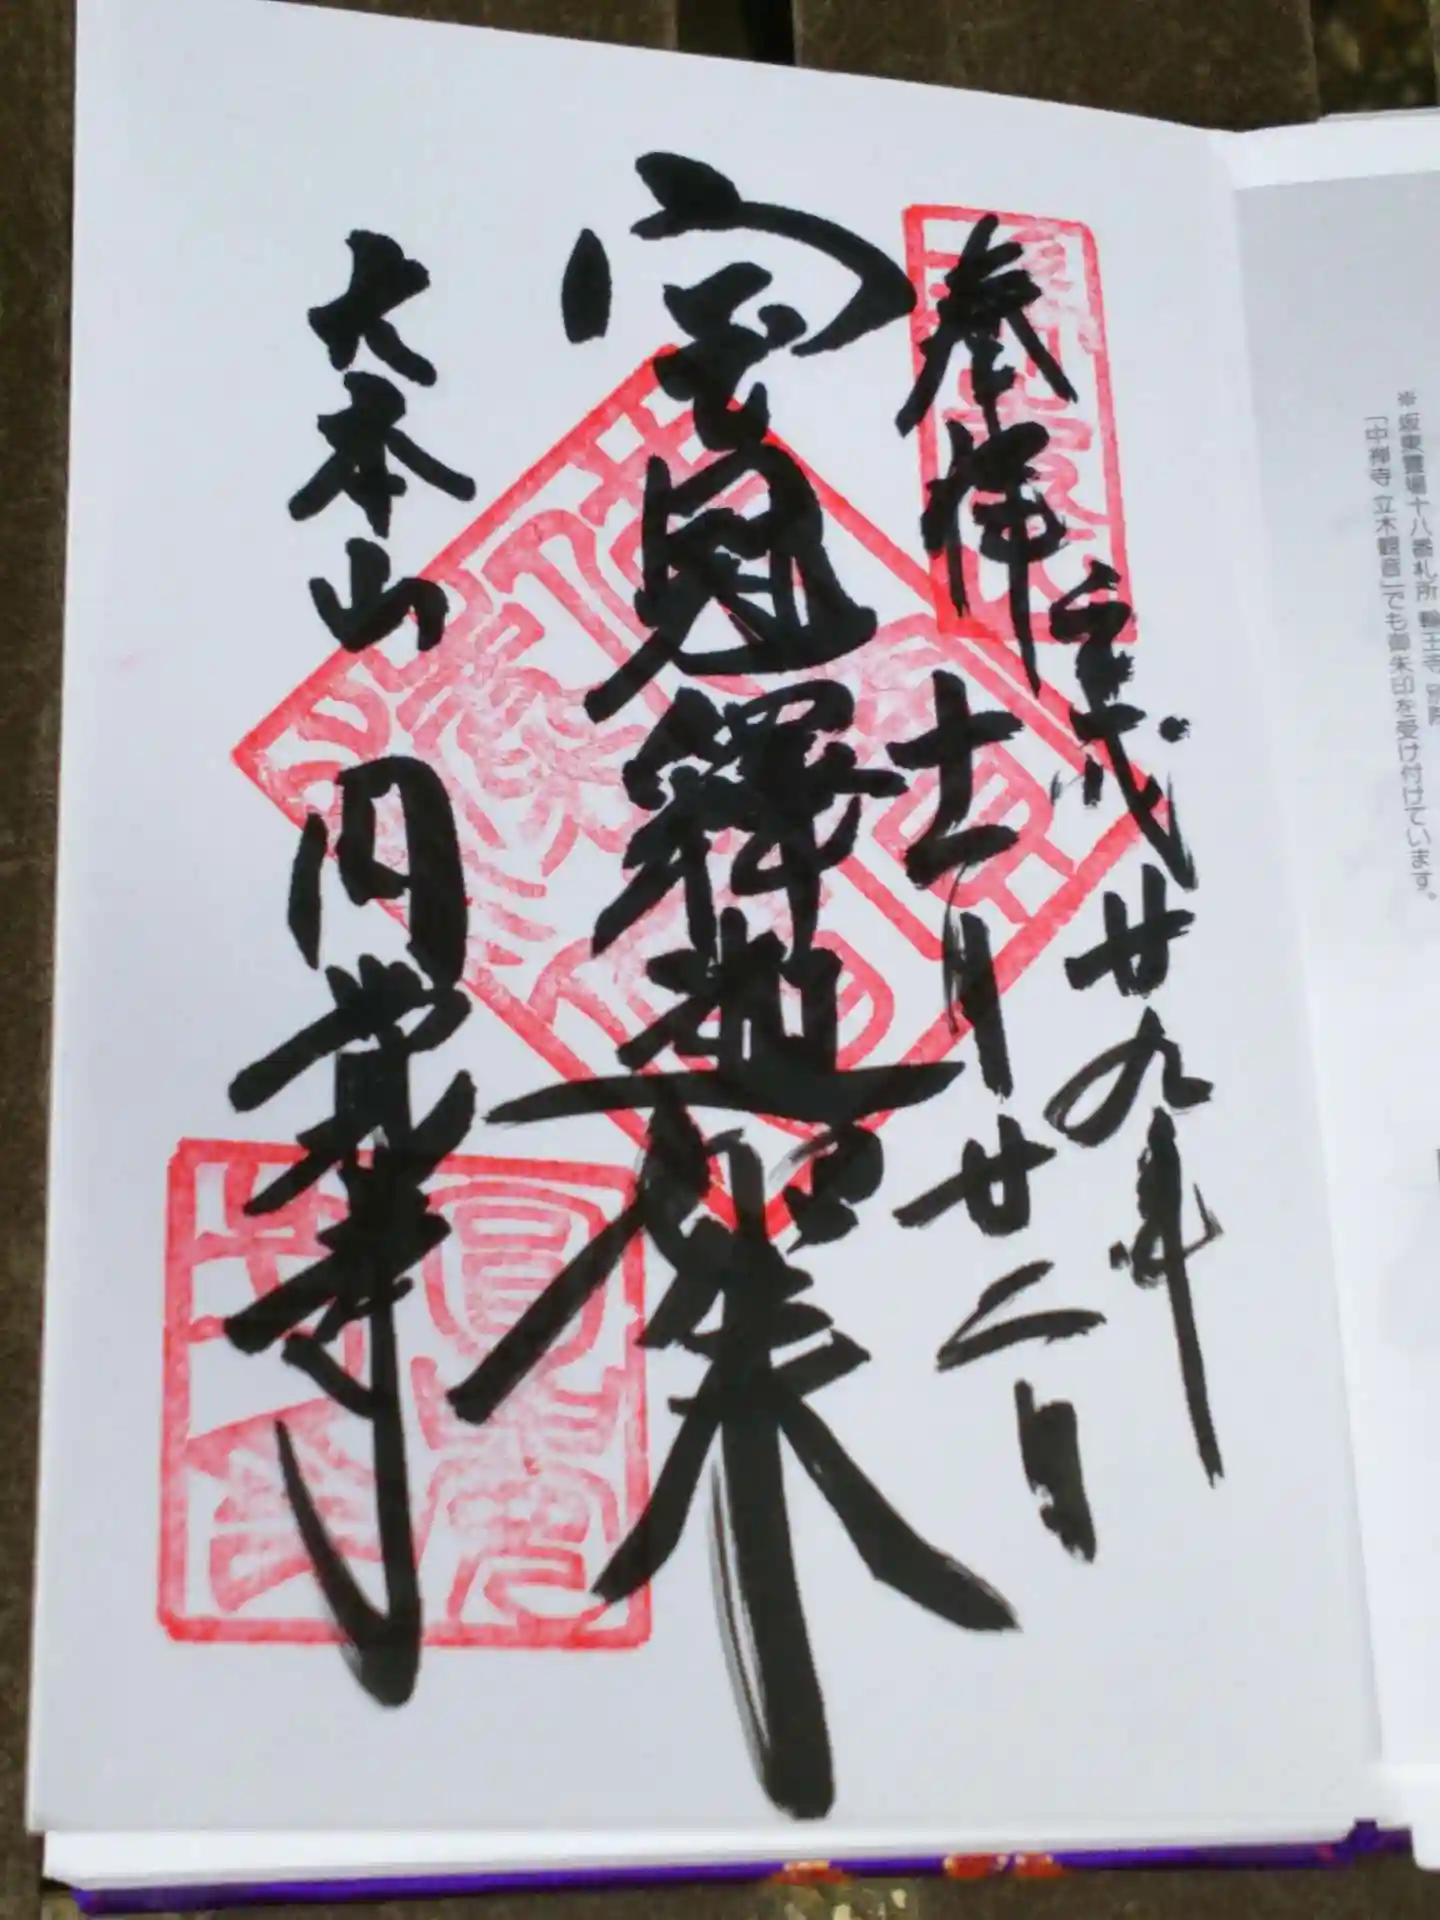 ※坂東霊場十八番札所 輪王寺 別院
「中禅寺 立木観音」でも御朱印を受け付けています。
奉拝
平成廿九年
十一月廿二日
宝冠釋迦如来
大本山 円覚寺